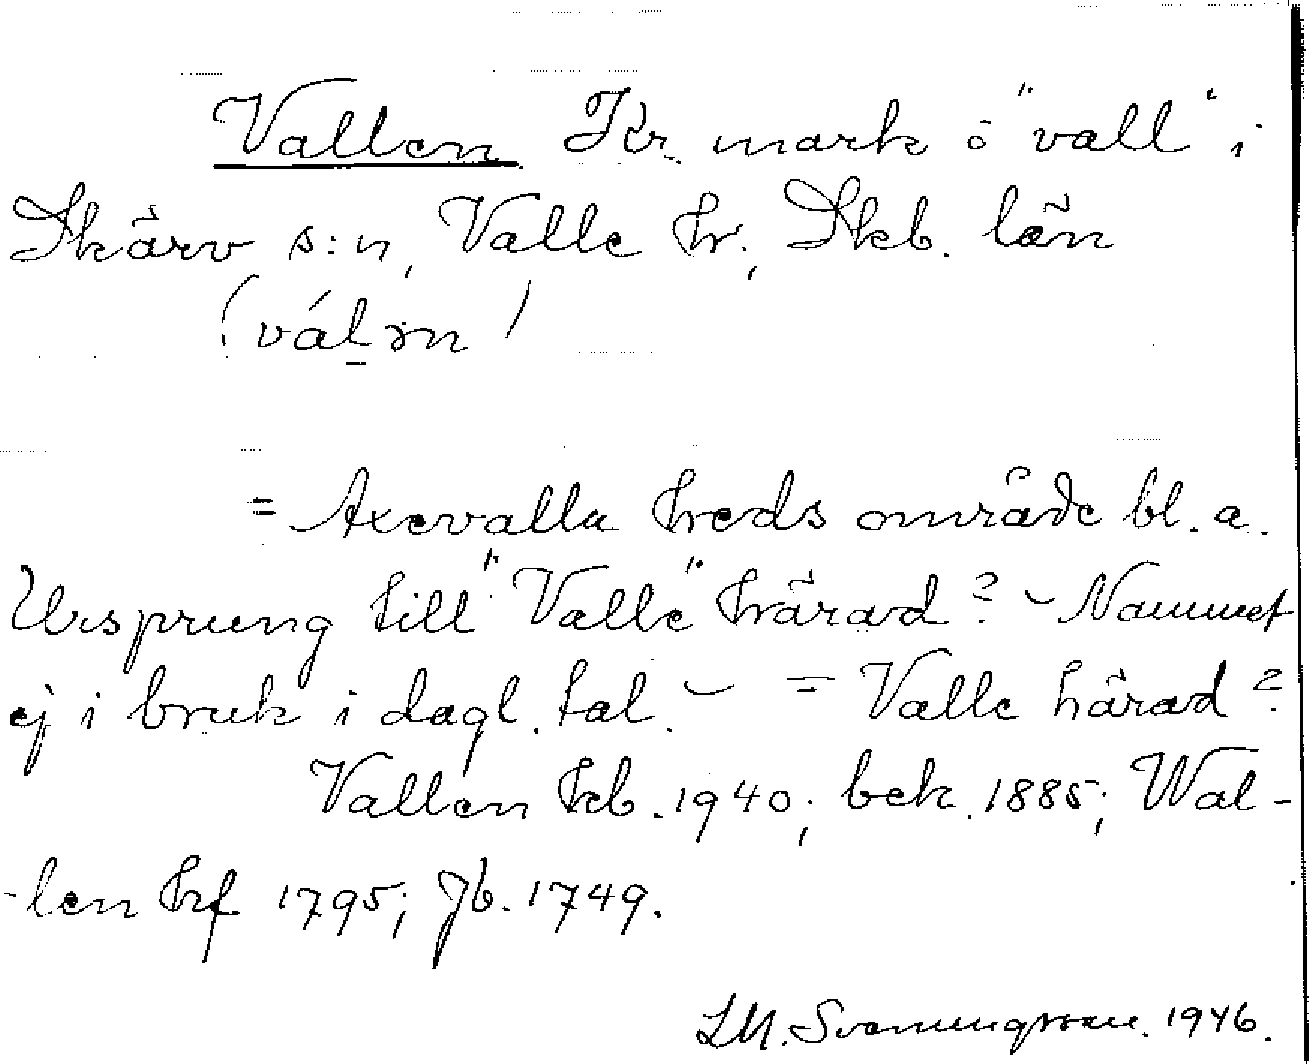 Vallen Kr. mark o "vall" i
Skärv s:n, Valle hr., Skb. län
(válən)
= Axevalla heds område bl. a.
Ursprung till "Valle" härad? – Namnet
ej i bruk i dagl. tal. – = Valle härad?
Vallen kb. 1940; bek. 1885; Wal-
-len hf 1795; Jb. 1749.
1946.